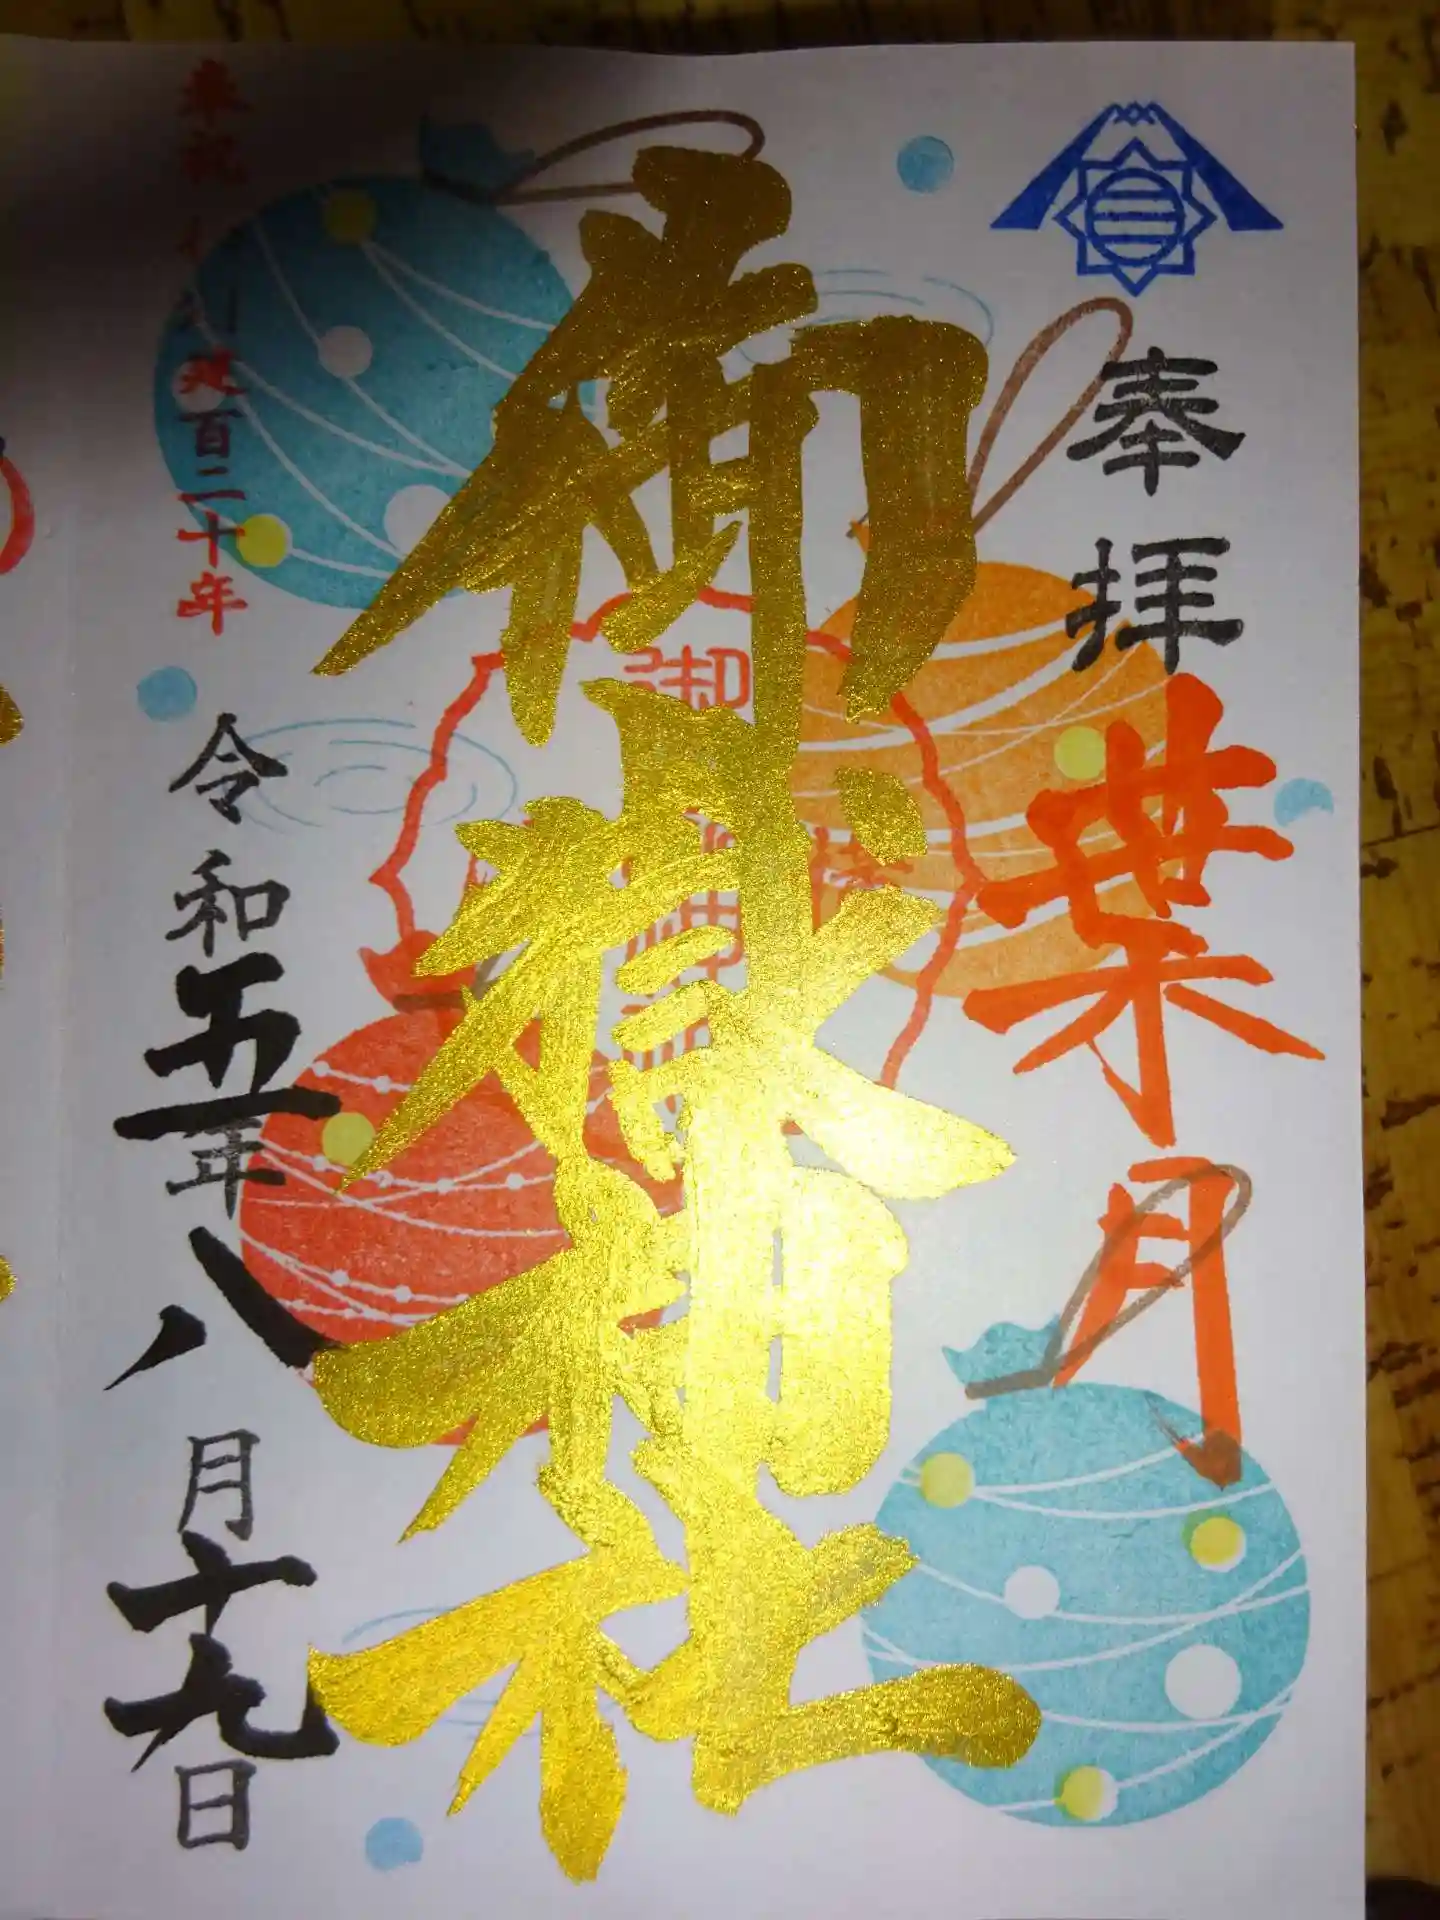 奉拝
葉月
御嶽神社
奉祝 創建百二十年
令和五年八月十九日